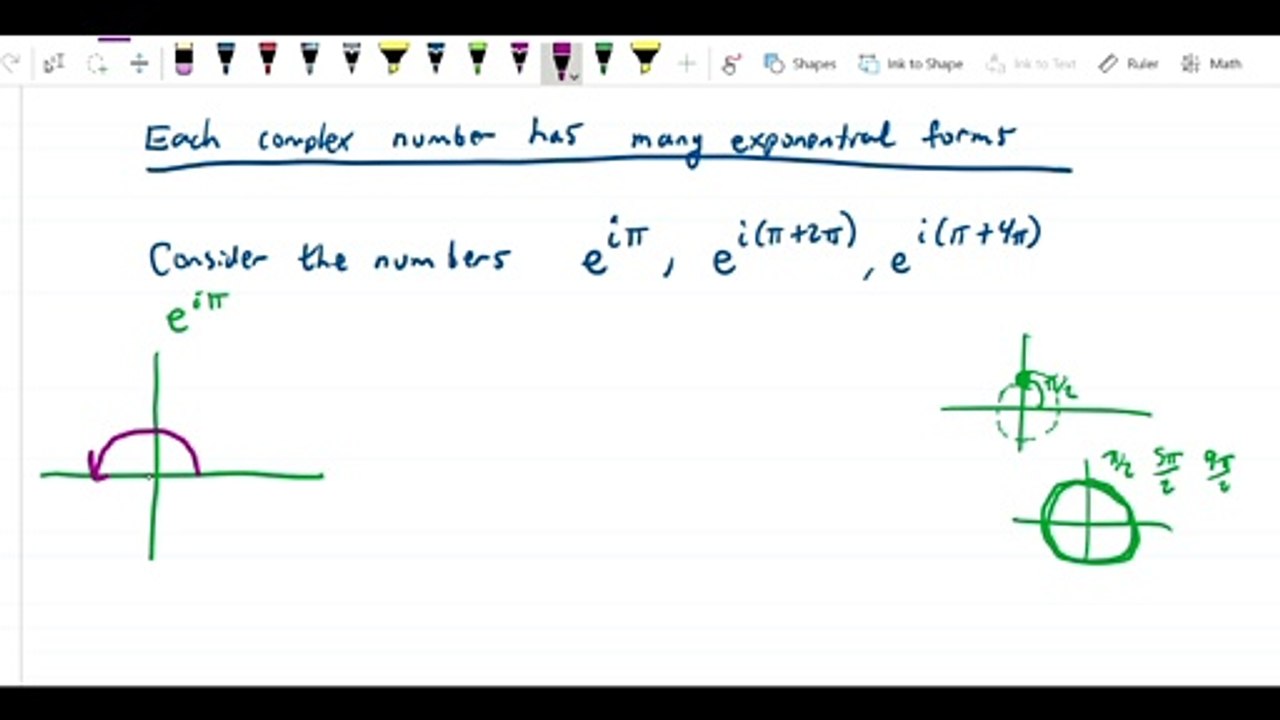 Shapes Ink to Shape Ink to Text Ruler Math
Each complex number has many exponential forms
Consider the numbers e^{iπ}, e^{i(π+2π)}, e^{i(π+4π)}
e^{iπ}
π/2
π/2 5π/2 9π/2